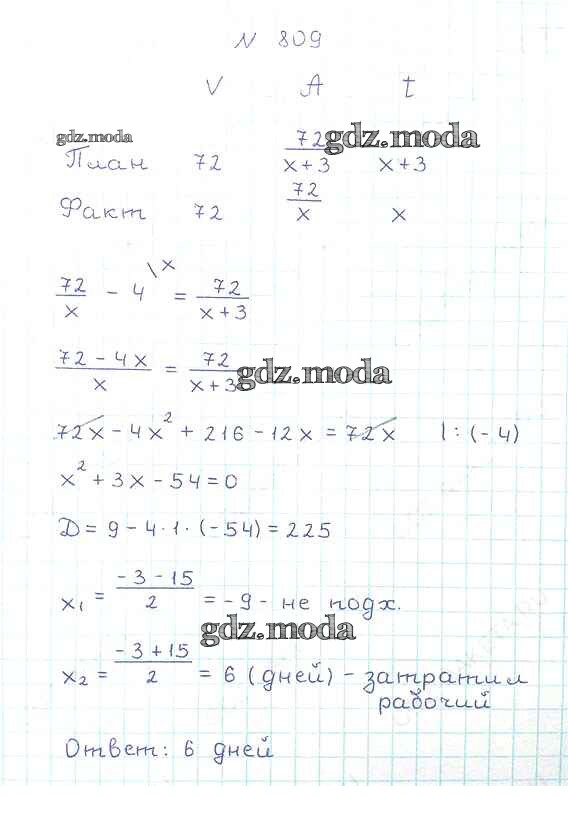 N 809
V A t
gdz.moda
План 72 72/(x+3) x+3
gdz.moda
Факт 72 72/x x
72/x - 4 \x = 72/(x+3)
(72-4x)/x = 72/(x+3)
gdz.moda
72x - 4x² + 216 - 12x = 72x |:(-4)
x² + 3x - 54 = 0
D = 9 - 4·1·(-54) = 225
x₁ = (-3-15)/2 = -9 - не подх.
gdz.moda
x₂ = (-3+15)/2 = 6 (дней) - затратил
рабочий
Ответ: 6 дней